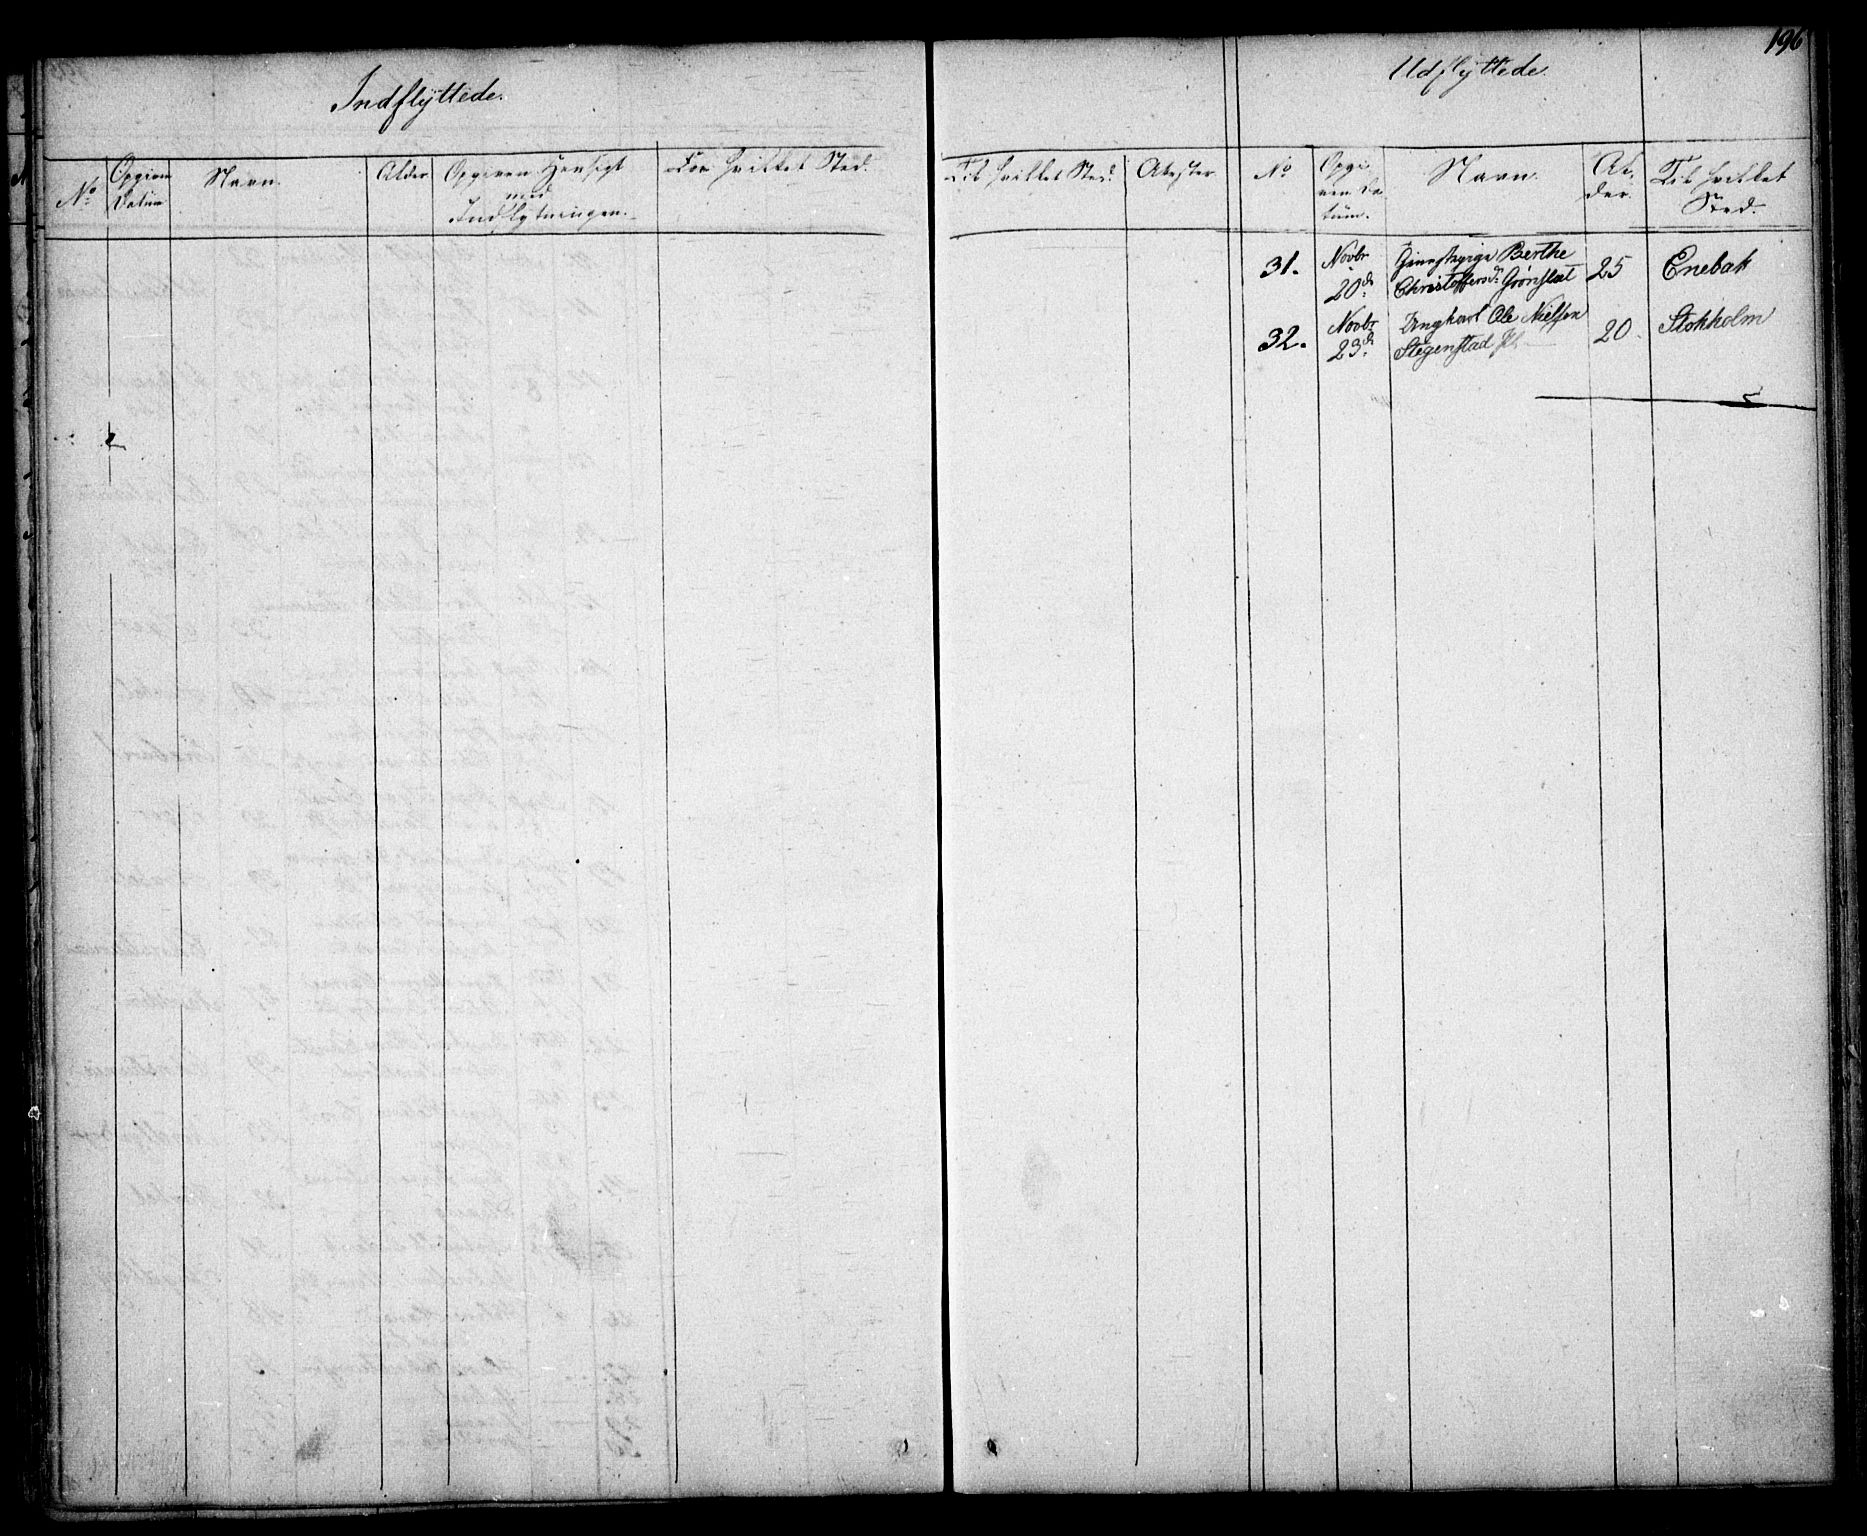 196
Indflyttede.
Udflyttede.
No
Opgiven
Datum
Navn.
Alder
Opgiven Hensigt
med
Indflytningen.
For hvilket Sted.
Til hvilket Sted.
Atester
No
Opgi
ven Da
tum.
Navn.
Al
der.
Til hvilket
Sted.
31.
Novbr
20de
Berthe
Christoffersdr Grønslet
25
Enebak
32.
Novbr
23de
Ungkarl Ole Nielsen
Stegenstad
20.
Stokholm